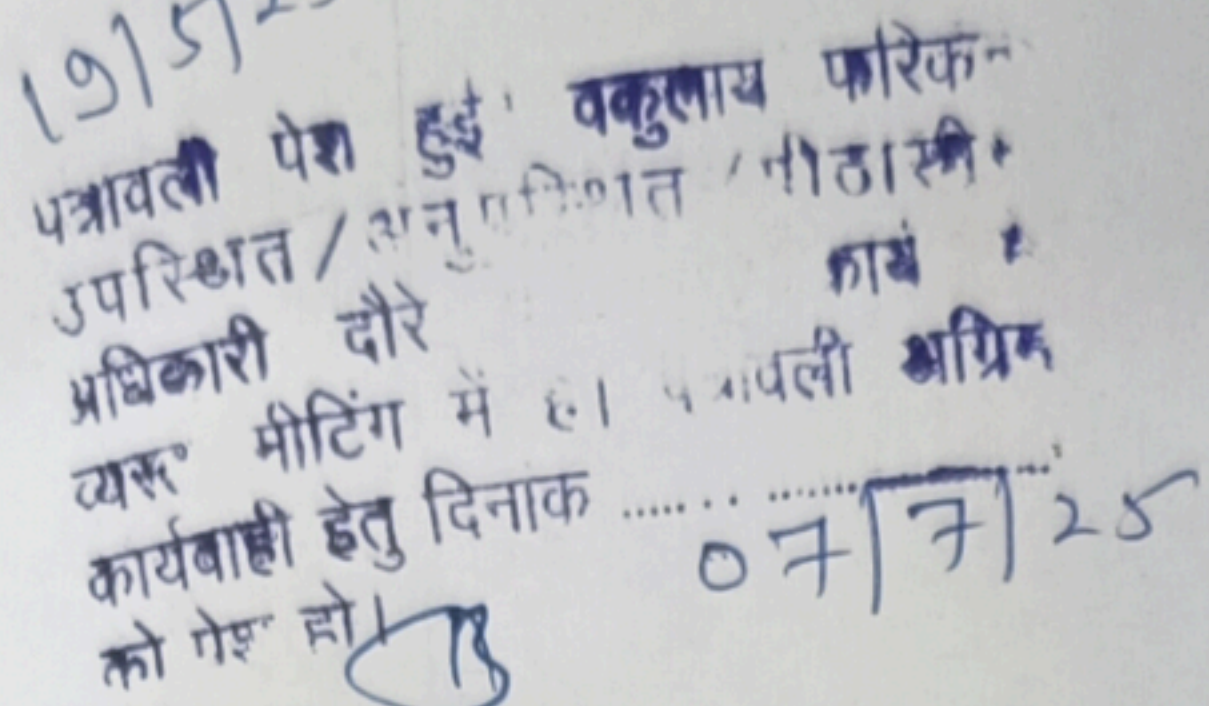 19/5/25
पत्रावली पेश हुई वकुलाय फरिकन
उपस्थित / अनुपस्थित / पीठासीन
अधिकारी दौरे कार्य
व्यस्त मीटिंग में है। पत्रावली अग्रिम
कार्यवाही हेतु दिनाक ...............
07/7/25
को पेश हो।